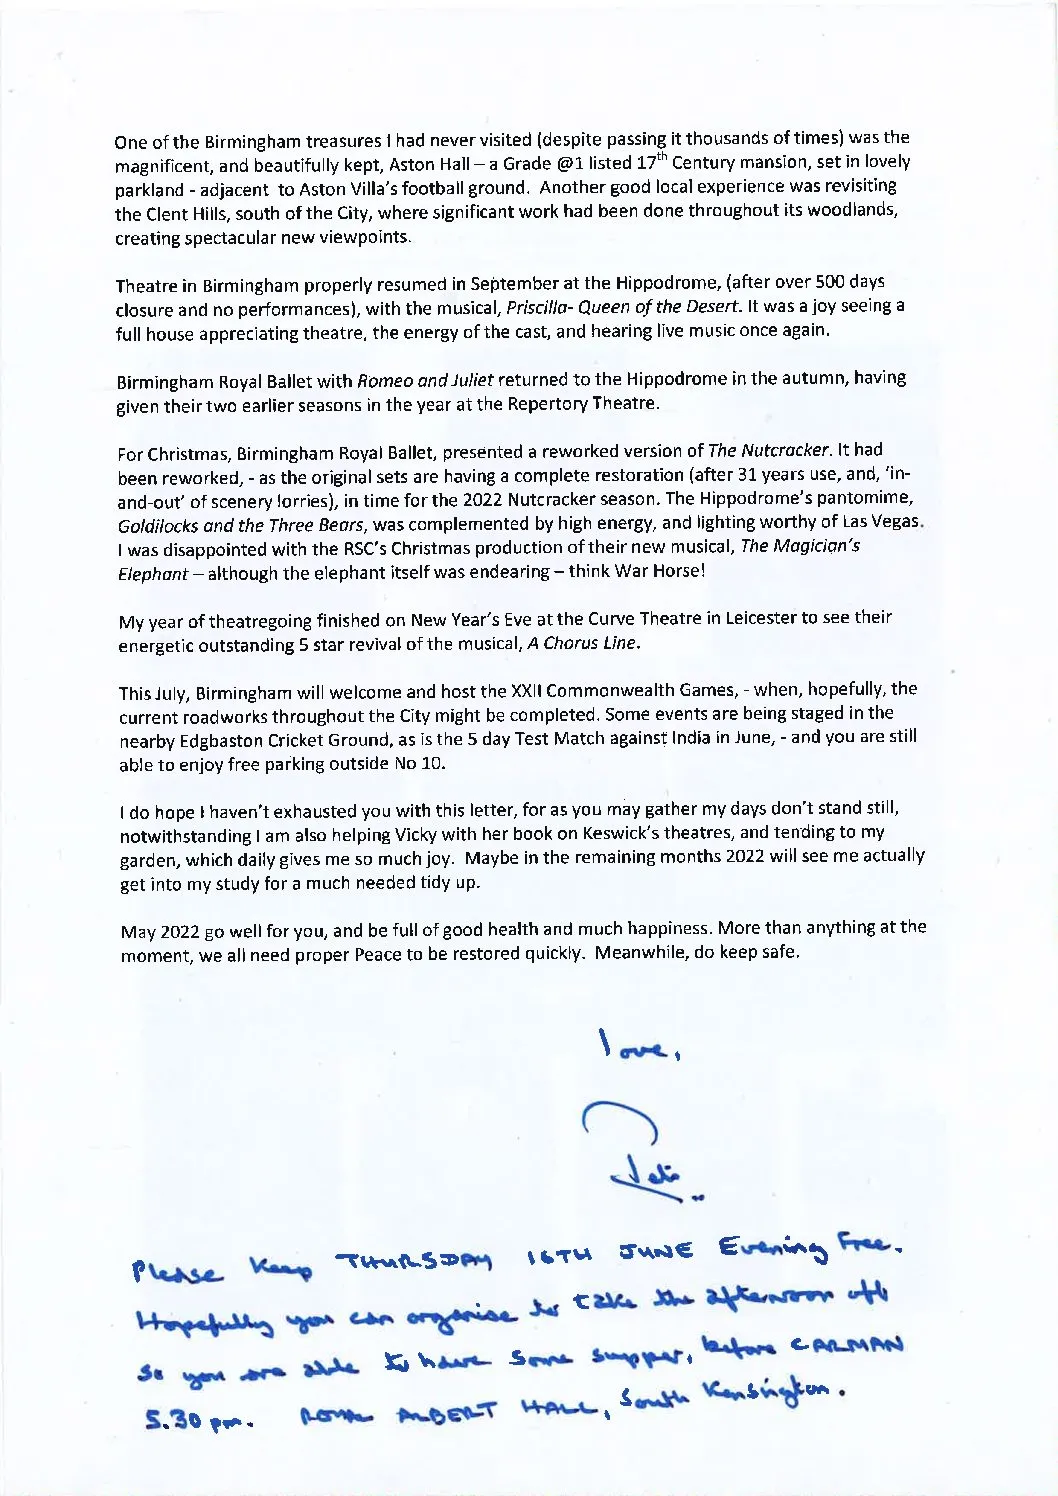 One of the Birmingham treasures I had never visited (despite passing it thousands of times) was the
magnificent, and beautifully kept, Aston Hall – a Grade @1 listed 17th Century mansion, set in lovely
parkland - adjacent to Aston Villa's football ground. Another good local experience was revisiting
the Clent Hills, south of the City, where significant work had been done throughout its woodlands,
creating spectacular new viewpoints.
Theatre in Birmingham properly resumed in September at the Hippodrome, (after over 500 days
closure and no performances), with the musical, Priscilla- Queen of the Desert. It was a joy seeing a
full house appreciating theatre, the energy of the cast, and hearing live music once again.
Birmingham Royal Ballet with Romeo and Juliet returned to the Hippodrome in the autumn, having
given their two earlier seasons in the year at the Repertory Theatre.
For Christmas, Birmingham Royal Ballet, presented a reworked version of The Nutcracker. It had
been reworked, - as the original sets are having a complete restoration (after 31 years use, and, 'in-
and-out' of scenery lorries), in time for the 2022 Nutcracker season. The Hippodrome's pantomime,
Goldilocks and the Three Bears, was complemented by high energy, and lighting worthy of Las Vegas.
I was disappointed with the RSC's Christmas production of their new musical, The Magician's
Elephant – although the elephant itself was endearing – think War Horse!
My year of theatregoing finished on New Year's Eve at the Curve Theatre in Leicester to see their
energetic outstanding 5 star revival of the musical, A Chorus Line.
This July, Birmingham will welcome and host the XXII Commonwealth Games, - when, hopefully, the
current roadworks throughout the City might be completed. Some events are being staged in the
nearby Edgbaston Cricket Ground, as is the 5 day Test Match against India in June, - and you are still
able to enjoy free parking outside No 10.
I do hope I haven't exhausted you with this letter, for as you may gather my days don't stand still,
notwithstanding I am also helping Vicky with her book on Keswick's theatres, and tending to my
garden, which daily gives me so much joy. Maybe in the remaining months 2022 will see me actually
get into my study for a much needed tidy up.
May 2022 go well for you, and be full of good health and much happiness. More than anything at the
moment, we all need proper Peace to be restored quickly. Meanwhile, do keep safe.
love,
Please Keep THURSDAY 16TH JUNE Evening Free.
Hopefully you can organise to take the afternoon off
So you are able to have some supper, before CARMAN
5.30 pm. ROYAL ALBERT HALL, South Kensington.